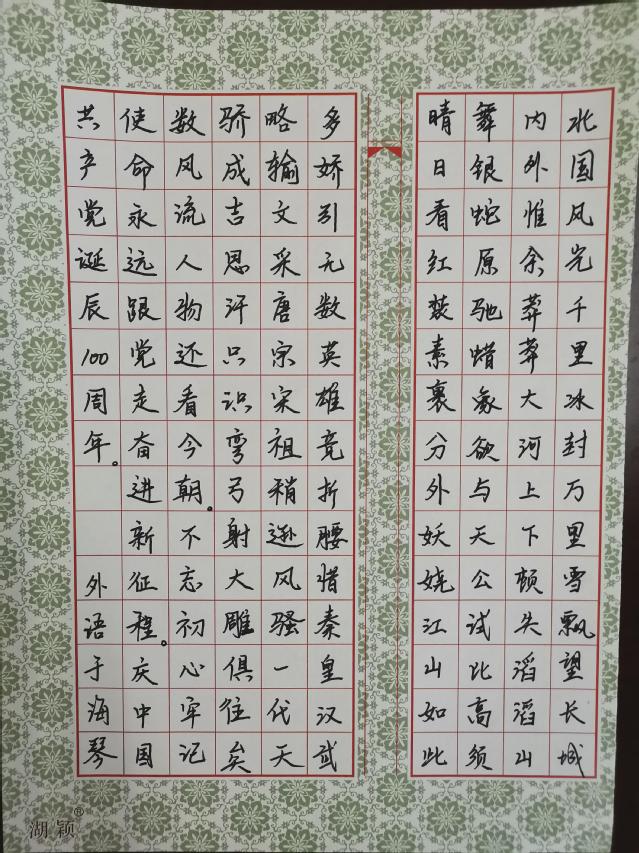 北国风光千里冰封万里雪飘望长城
内外惟余莽莽大河上下顿失滔滔山
舞银蛇原驰蜡象欲与天公试比高须
晴日看红装素裹分外妖娆江山如此
多娇引无数英雄竞折腰惜秦皇汉武
略输文采唐宗宋祖稍逊风骚一代天
骄成吉思汗只识弯弓射大雕俱往矣
数风流人物还看今朝。不忘初心牢记
使命永远跟党走奋进新征程。庆中国
共产党诞辰100周年。 外语于海琴
湖颖®